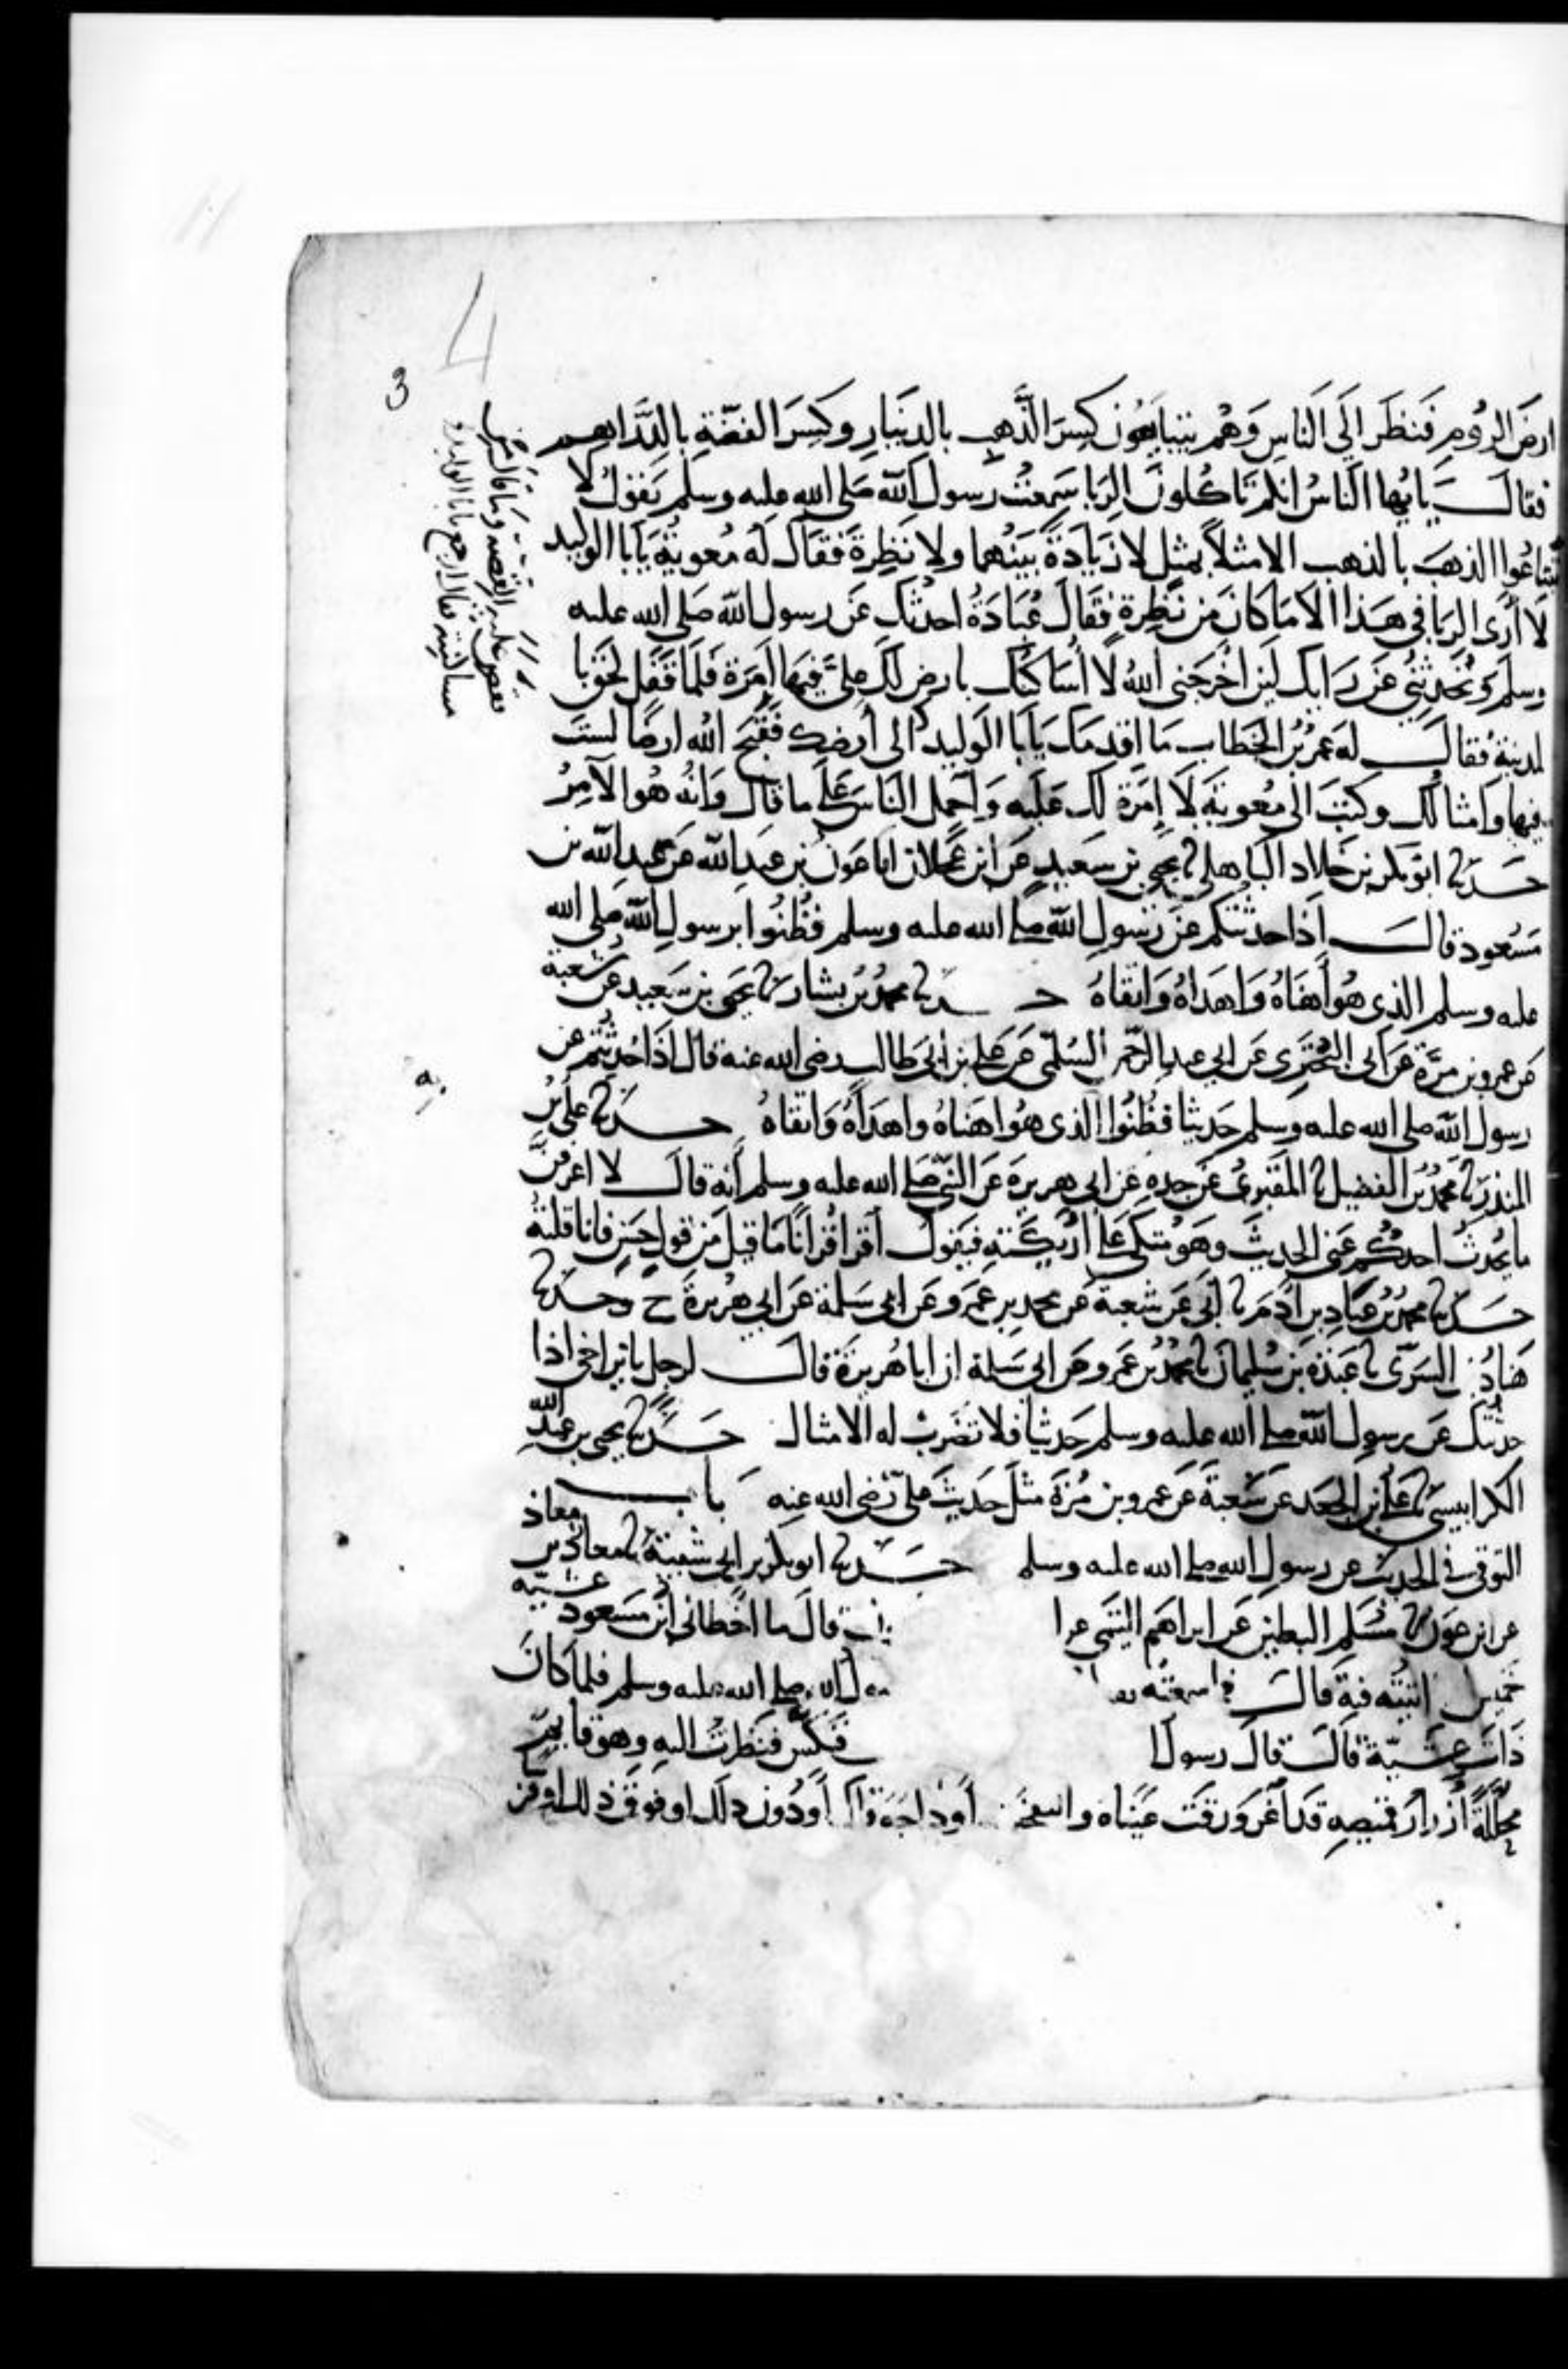 4
3
ارض الروم فنظر الى الناس وهم يتبايعون كسر الذهب بالدينار وكسر الفضة بالدراهم
فقال يايها الناس انكم تاكلون الربا سمعت رسول الله صلى الله عليه وسلم يقول لا
تبتاعوا الذهب بالذهب الا مثلا بمثل لا زيادة بينهما ولا نظرة فقال له معوية يابا الوليد
لا أرى الربا في هذا الا ما كان من نظرة فقال عبادة احدثك عن رسول الله صلى الله عليه
وسلم وتحدثني عن رايك لين اخرجني الله لا أساكنك بارض لك علي فيها امرة فلما قفل لحق با
لمدينة فقال له عمر بن الخطاب ما اقدمك يابا الوليد الى أرضك فقبح الله ارضا لست
فيها وامثالك وكتب الى معوية لا إمرة لك عليه واحمل الناس على ما قال وانه هو الآمر
حدنا ابو بكر بن خلاد الباهلي نا يحيى بن سعيد عن ابن عجلان انا عون بن عبد الله عن عبد الله بن
مسعود قال اذا حدثتكم عن رسول الله صلى الله عليه وسلم فظنوا برسول الله صلى الله
عليه وسلم الذي هو أهناه واهداه واتقاه حدنا محمد بن بشار نا يحيى بن سعيد عن شعبة
عن عمرو بن مرة عن ابى البختري عن ابي عبد الرحمن السلمي عن علي بن ابي طالب رضى الله عنه قال اذا حدثتم عن
رسول الله صلى الله عليه وسلم حديثا فظنوا الذي هو اهناه واهداه واتقاه حدنا علي بن
المنذر نا محمد بن الفضيل نا المقبري عن جده عن ابي هريرة عن النبي صلى الله عليه وسلم أنه قال لا اعرفن
ما يحدث احدكم عني الحديث وهو متكى على اريكته فيقول اقرا قرانا ما قيل من قول حسن فانا قلته
حدنا محمد بن عباد بن آدم نا أبي عن شعبة عن محمد بن عمرو عن ابي سلمة عن ابي هريرة ح وحدنا
هناد بن السري نا عبدة بن سليمان نا محمد بن عمرو عن ابي سلمة ان ابا هريرة قال لرجل يابن اخي اذا
حدثتك عن رسول الله صلى الله عليه وسلم حديثا فلا تضرب له الامثال حدنا يحيى بن عبد الله
الكرابيسي نا علي بن الجعد عن شعبة عن عمرو بن مرة مثل حديث علي رضى الله عنه باب
التوقي في الحديث عن رسول الله صلى الله عليه وسلم حدنا ابو بكر بن ابي شيبة نا معاذ بن معاذ
عن ابن عون نا مسلم البطين عن ابراهيم التيمي عن ا قال ما اخطاني ابن مسعود عشية
خميس اتيته فيه قال فما سمعته صلى الله عليه وسلم فلما كان
ذات عشية قال قال رسول ا فنكس فنظرت اليه وهو قايم
محللة أزرار قميصه قد اغرورقت عيناه وانتفخت أوداجه قال أو دون ذلك او فوق ذلك او قر